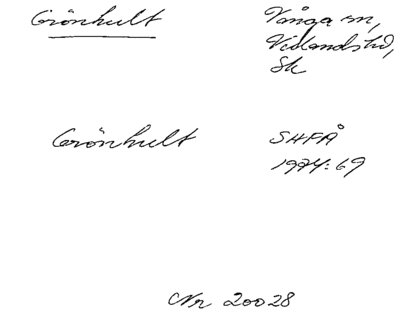 Grönhult
Vånga sn,
Villands hd,
Sk
Grönhult
SHFÅ
1974:69
Nr 20028